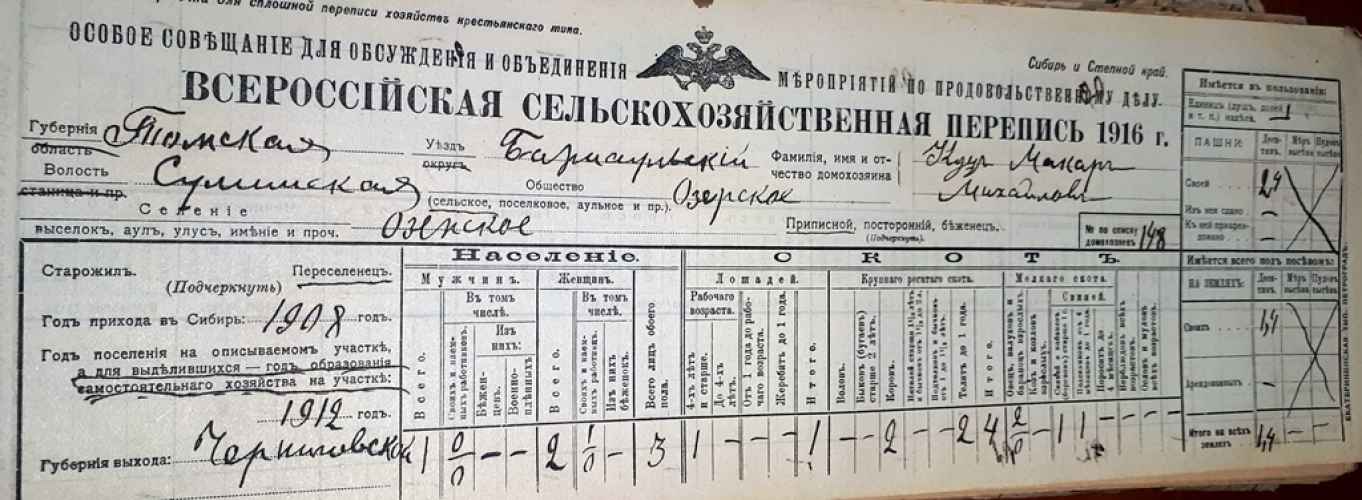 для сплошной переписи хозяйствъ крестьянскаго типа.
ОСОБОЕ СОВѢЩАНІЕ ДЛЯ ОБСУЖДЕНІЯ И ОБЪЕДИНЕНІЯ МѢРОПРІЯТІЙ ПО ПРОДОВОЛЬСТВЕННОМУ ДѢЛУ.
Сибирь и Степной край.
ВСЕРОССІЙСКАЯ СЕЛЬСКОХОЗЯЙСТВЕННАЯ ПЕРЕПИСЬ 1916 г.
Губернія Томская Уѣздъ Барнаульскій Фамилія, имя и от-
область округъ чество домохозяина Макаръ
Волость Общество Михайловъ
станица и пр. (сельское, поселковое, аульное и пр.). Озерское
Селеніе
выселокъ, аулъ, улусъ, имѣніе и проч. Приписной, посторонній, бѣженецъ.
(Подчеркнуть).
№ по списку
домохозяевъ 148
Старожилъ. Переселенецъ.
(Подчеркнуть)
Годъ прихода въ Сибирь: 1908 годъ.
Годъ поселенія на описываемомъ участкѣ,
а для выдѣлившихся — годъ образованія
самостоятельнаго хозяйства на участкѣ:
1912 годъ.
Губернія выхода: Черниговской
Населеніе.
Мужчинъ. Женщинъ.
Въ томъ числѣ. Въ томъ числѣ.
Изъ нихъ:
Всего.
Своихъ и наем-
ныхъ работниковъ.
Бѣжен-
цевъ.
Военно-
плѣнныхъ
Всего.
Своихъ и наем-
ныхъ работниц.
Изъ нихъ
бѣженокъ.
Всего лицъ обоего
пола.
1 0/0 – – 2 1/0 – 3
СКОТЪ.
Лошадей. Крупнаго рогатаго скота. Мелкаго скота.
Рабочаго
возраста.
4-хъ лѣтъ
и старше.
До 4-хъ
лѣтъ.
Отъ 1 года до рабо-
чаго возраста.
Жеребятъ до 1 года.
Итого.
Воловъ.
Быковъ (бугаевъ)
старше 2 лѣтъ.
Коровъ.
Телятъ до 1 года.
Итого.
Свиней.
1 – – – 1 – – 2 – – 2 4 2/0 – 1 1 – –
Имѣется въ пользованіи:
Единицъ (душ, долей
и т. п.) надѣла. 1
ПАШНИ: Деся-
тинъ.
Своей 2,4
Изъ нея сдано –
Къ ней прирен-
довано –
Имѣется всего подъ посѣвомъ:
НА ЗЕМЛЯХЪ: Деся-
тинъ.
Своихъ 1,4
Арендованныхъ –
Итого на всѣхъ
земляхъ 1,4